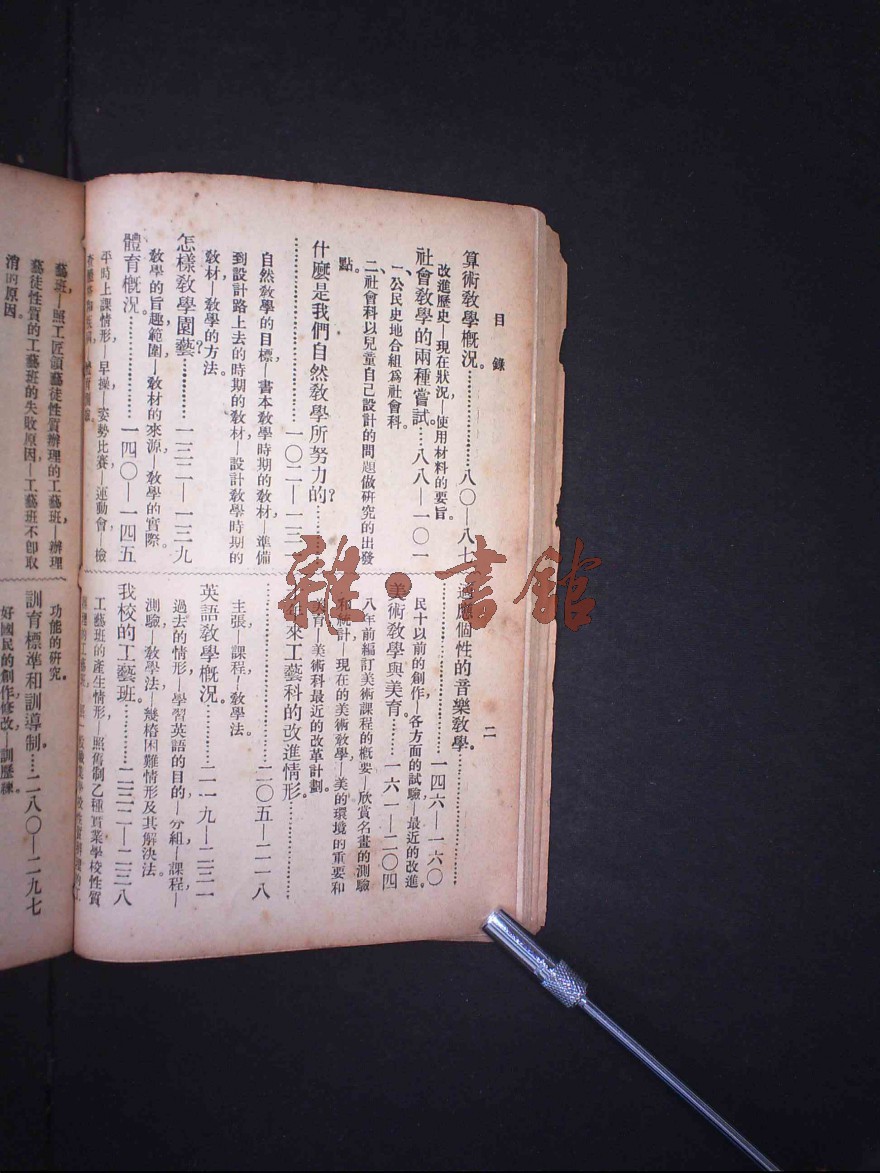 目錄
二
算術敎學概況。……八〇—八七
改進歷史—現在狀況—使用材料的要旨。
社會敎學的兩種嘗試。……八八—一〇一
一、公民史地合組爲社會科。
二、社會科以兒童自己設計的問題做研究的出發
點。
什麼是我們自然敎學所努力的?……
……一〇二—一三一
自然敎學的目標—書本敎學時期的敎材—準備
到設計路上去的時期的敎材—設計敎學時期的
敎材—敎學的方法。
怎樣敎學園藝?……一三二—一三九
敎學的旨趣範圍—敎材的來源,敎學的實際。
體育概況。……一四〇—一四五
平時上課情形—早操—姿勢比賽—運動會—檢
適應個性的音樂敎學。……
……一四六—一六〇
民十以前的創作—各方面的試驗—最近的改進。
美術敎學與美育。……一六一—二〇四
八年前編訂美術課程的概要—欣賞名畫的測驗
和統計—現在的美術敎學—美的環境的重要和
美育—美術科最近的改革計劃。
年來工藝科的改進情形。……
……二〇五—二一八
主張—課程—敎學法。
英語敎學概況。……二一九—二三一
過去的情形—學習英語的目的—分組—課程—
測驗—敎學法—幾樁困難情形及其解決法。
我校的工藝班。……二三二—二三八
工藝班的產生情形,照舊制乙種實業學校性質
藝班—照工匠領藝徒性質辦理的工藝班—辦理
藝徒性質的工藝班的失敗原因—工藝班不卽取
消的原因。
功能的研究。
訓育標準和訓導制。……二八〇—二九七
好國民的創作,修改—訓歷練。
雜·書館